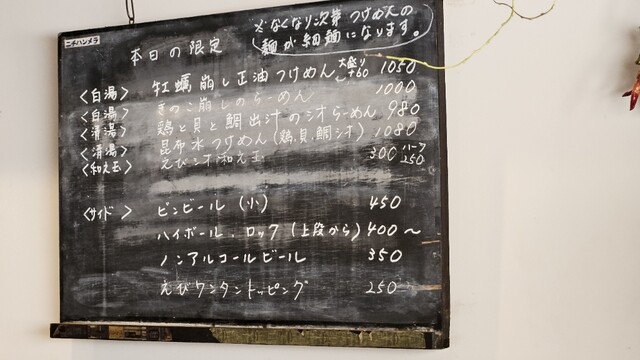 ニチハンメラ
本日の限定
※なくなり次第つけめんの
麺が細麺になります。
〈白湯〉 牡蠣崩し正油つけめん 大盛り+60 1050
〈白湯〉 きのこ崩しのらーめん 1000
〈清湯〉 鶏と貝と鯛出汁のシオらーめん 980
〈清湯〉 昆布水つけめん(鶏,貝,鯛シオ) 1080
〈和え玉〉 えびシオ和え玉 300 ハーフ250
〈サイド〉 ビンビール (小) 450
ハイボール・ロック (上段から) 400〜
ノンアルコールビール 350
えびワンタントッピング 250